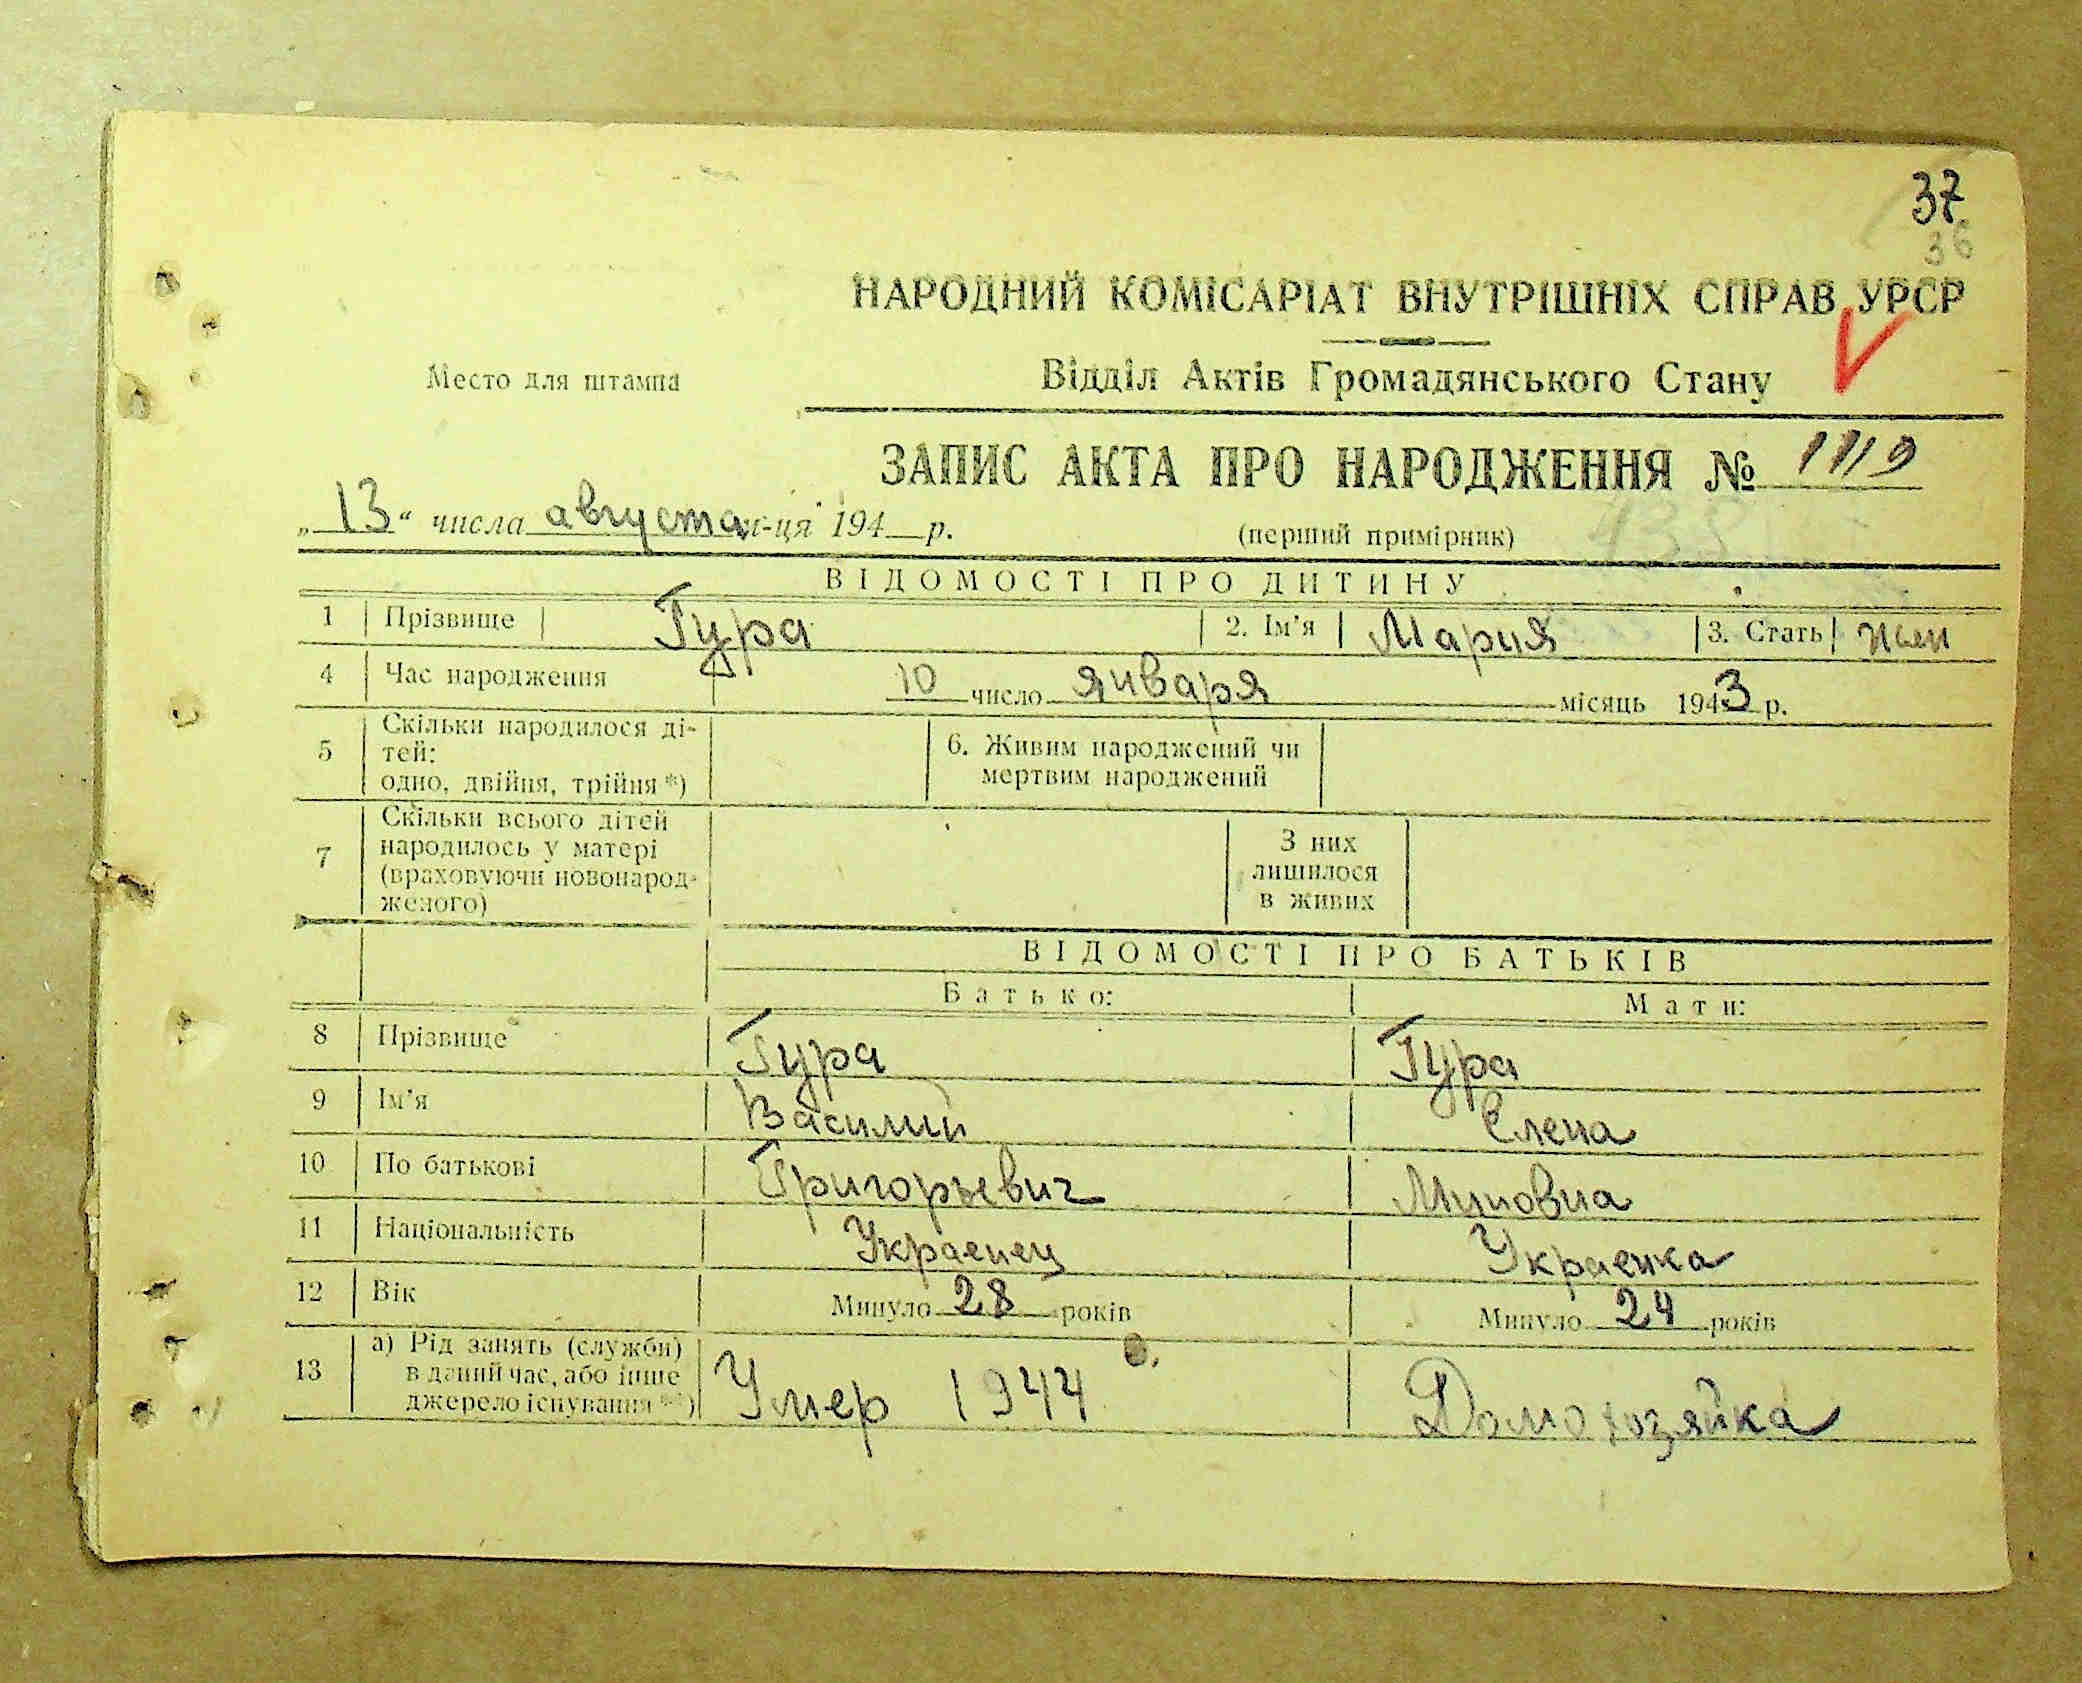 37
36
НАРОДНИЙ КОМІСАРІАТ ВНУТРІШНІХ СПРАВ УРСР
Место для штампа
Відділ Актів Громадянського Стану
ЗАПИС АКТА ПРО НАРОДЖЕННЯ № 1119
„13“ числа августа м-ця 194 р.
(перший примірник)
ВІДОМОСТІ ПРО ДИТИНУ
1 Прізвище Гура 2. Ім'я Мария 3. Стать жен
4 Час народження 10 число января місяць 1943 р.
5 Скільки народилося ді-
тей:
одно, двійня, трійня *)
6. Живим народжений чи
мертвим народжений
7 Скільки всього дітей
народилось у матері
(враховуючи новонарод-
женого)
З них
лишилося
в живих
ВІДОМОСТІ ПРО БАТЬКІВ
Батько: Мати:
8 Прізвище Гура Гура
9 Ім'я Василий Елена
10 По батькові Григорьевич Миновна
11 Національність Украенец Украенка
12 Вік Минуло 28 років Минуло 24 років
13 а) Рід занять (служби)
в даний час, або інше
джерело існування **)
Умер 1944 Домохозяйка